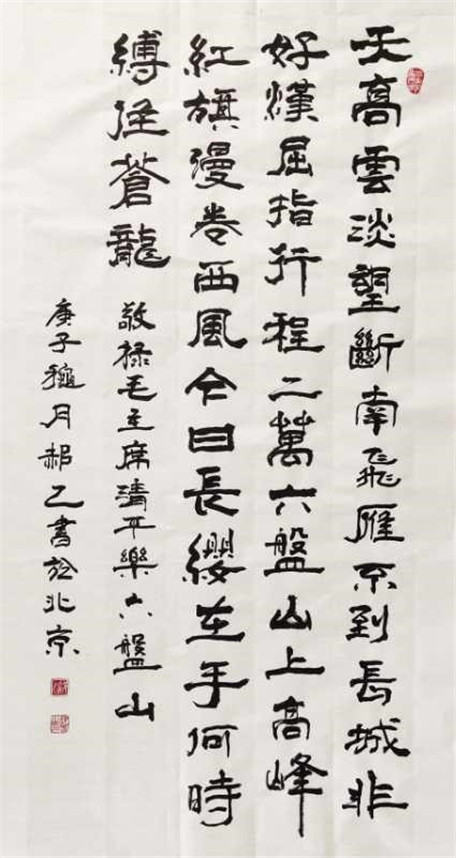 天高雲淡望斷南飛雁不到長城非
好漢屈指行程二萬六盤山上高峰
紅旗漫卷西風今日長纓在手何時
縛住蒼龍
敬祿毛主席清平樂六盤山
庚子穐月郝乙書於北京